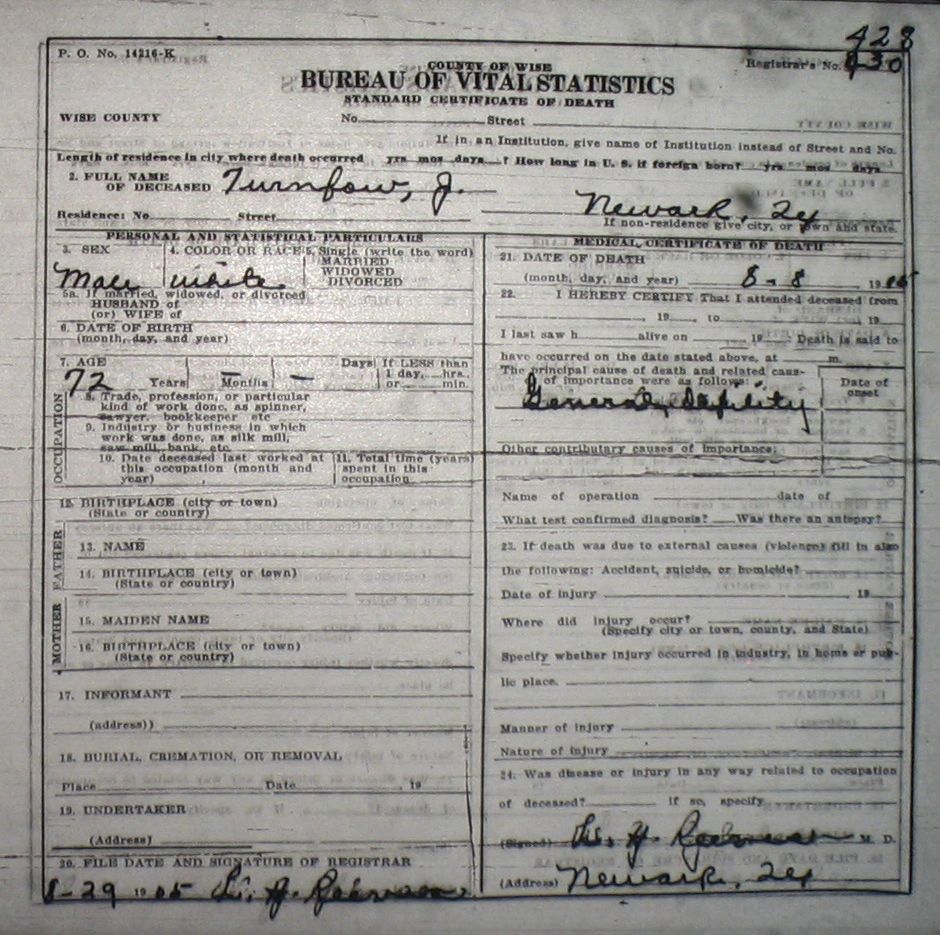 428
P. O. No. 14216-K
COUNTY OF WISE
Registrar's No. 430
BUREAU OF VITAL STATISTICS
STANDARD CERTIFICATE OF DEATH
WISE COUNTY No. Street
If in an Institution, give name of Institution instead of Street and No.
Length of residence in city where death occurred yrs mos days ? How long in U. S. if foreign born? yrs mos days
2. FULL NAME
OF DECEASED Turnbow, J.
Newark, Tex
Residence: No. Street
If non-residence give city, or town and state.
PERSONAL AND STATISTICAL PARTICULARS
3. SEX 4. COLOR OR RACE 5. Single (write the word)
MARRIED
WIDOWED
DIVORCED
Male white
5a. If married, widowed, or divorced
HUSBAND of
(or) WIFE of
6. DATE OF BIRTH
(month, day, and year)
7. AGE Days If LESS than
1 day, hrs.
72 Years — Months — or min.
OCCUPATION
8. Trade, profession, or particular
kind of work done, as spinner,
sawyer, bookkeeper etc
9. Industry or business in which
work was done, as silk mill,
saw mill, bank, etc.
10. Date deceased last worked at
this occupation (month and
year)
11. Total time (years)
spent in this
occupation
12. BIRTHPLACE (city or town)
(State or country)
FATHER
13. NAME
14. BIRTHPLACE (city or town)
(State or country)
MOTHER
15. MAIDEN NAME
16. BIRTHPLACE (city or town)
(State or country)
17. INFORMANT
(address))
18. BURIAL, CREMATION, OR REMOVAL
Place Date , 19
19. UNDERTAKER
(Address)
20. FILE DATE AND SIGNATURE OF REGISTRAR
8-29 1905
MEDICAL CERTIFICATE OF DEATH
21. DATE OF DEATH
(month, day, and year) 8-8 19
22. I HEREBY CERTIFY That I attended deceased from
, 19 , to , 19
I last saw h alive on , 19 : Death is said to
have occurred on the date stated above, at m.
The principal cause of death and related caus-
es of importance were as follows:
Date of
onset
General debility
Other contributory causes of importance:
Name of operation date of
What test confirmed diagnosis? Was there an autopsy?
23. If death was due to external causes (violence) fill in also
the following: Accident, suicide, or homicide?
Date of injury 19
Where did injury occur?
(Specify city or town, county, and State)
Specify whether injury occurred in industry, in home or pub-
lic place.
Manner of injury
Nature of injury
24. Was disease or injury in any way related to occupation
of deceased? If so, specify
(Signed) M. D.
(Address) Newark, Tex